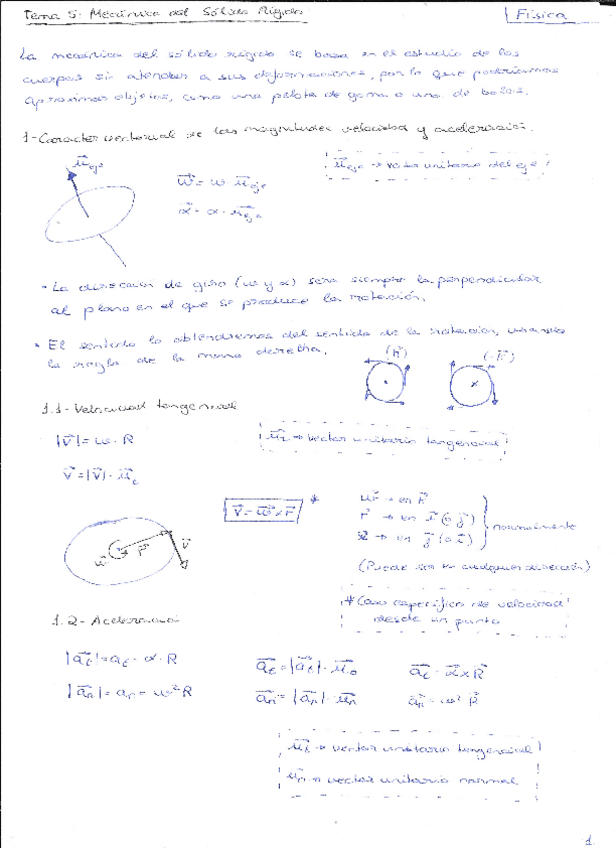 Tema 5: Mecánica del Sólido Rígido
Física
La mecánica del sólido rígido se basa en el estudio de los
cuerpos sin atender a sus deformaciones, por lo que podríamos
aproximar objetos, como una pelota de goma o una de bolos.
1-Caracter vectorial de las magnitudes velocidad y aceleración.
μ⃗eje
ω⃗ = ω · μ⃗eje
α⃗ = α · μ⃗eje
μ⃗eje → vector unitario del eje
• La dirección de giro (ω y α) será siempre la perpendicular
al plano en el que se produce la rotación.
• El sentido lo obtendremos del sentido de la rotación, usando
la regla de la mano derecha.
(k⃗)
(-k⃗)
1.1- Velocidad tangencial
|v⃗| = ω · R
v⃗ = |v⃗| · μ⃗t
μ⃗t → vector unitario tangencial
v⃗ = ω⃗ x r⃗ *
ω⃗ → en k⃗
r⃗ → en i⃗ (o j⃗)
→ en j⃗ (o i⃗)
normalmente
(Puede ser en cualquier dirección)
ω⃗ r⃗ v⃗
* Caso específico de velocidad
desde un punto
1.2- Aceleración
|a⃗t| = at = α · R
|a⃗n| = an = ω² R
a⃗t = |a⃗t| ·
a⃗n = |a⃗n| · μ⃗n
a⃗t = α⃗ x R⃗
a⃗n = ω² R⃗
μ⃗t → vector unitario tangencial
μ⃗n → vector unitario normal
1